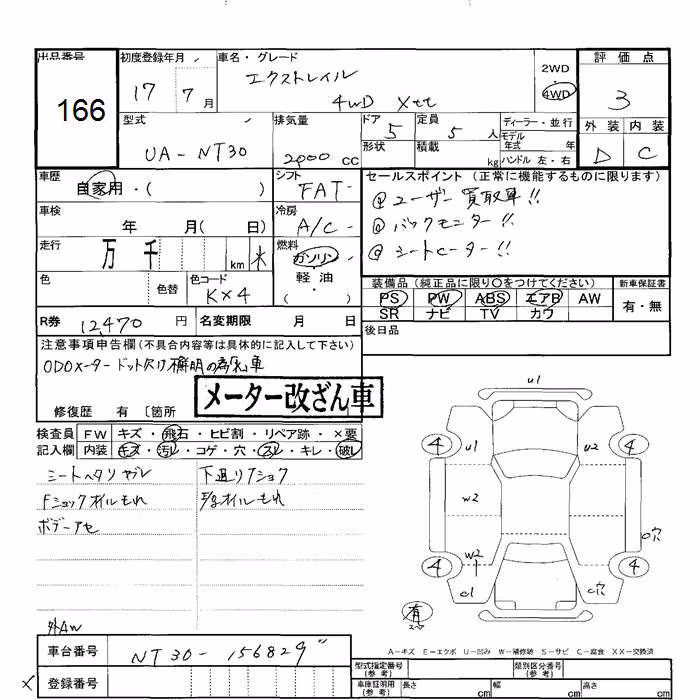 出品番号 初度登録年月 車名・グレード 評価点
166
17 7月 エクストレイル 2WD 4WD 3
4WD Xtt
型式 排気量 ドア 定員 ディーラー・並行 外装 内装
UA-NT30 2000cc 5 5人 モデル年式 年 D C
形状 積載 kg ハンドル 左・右
車歴 シフト セールスポイント(正常に機能するものに限ります)
自家用・( ) FAT @ユーザー買取車!!
車検 冷房 @バックモニター!!
年 月( 日) A/C @シートヒーター!!
走行 燃料
万 千 km ガソリン
色 色替 色コード 軽油 装備品(純正品に限り○をつけてください) 新車保証書
KX4 ( ・ ) PS PW ABS エアB AW 有・無
SR ナビ TV カワ
R券 12,470円 名変期限 月 日 後日品
注意事項申告欄(不具合内容等は具体的に記入して下さい)
ODOメーター ドット欠け
メーター改ざん車
修復歴 有 〔箇所
検査員 FW キズ・飛石・ヒビ割・リペア跡・×要
記入欄 内装 キズ・汚レ・コゲ・穴・スレ・キレ・破レ
シートヘタリ ヤブレ 下廻リ
Fショックオイルもれ オイルもれ
ボデーアセ
外AW
u1
4 u1 u2 4
w2
w2 穴
4 4
c1 c穴
有
A-キズ E-エクボ U-凹み W-補修跡 S-サビ C-腐食 XX-交換済
車台番号 NT30-156829
登録番号
型式指定番号(参考) 類別区分番号(参考)
車庫証明用(参考) 長さ cm 幅 cm 高さ cm